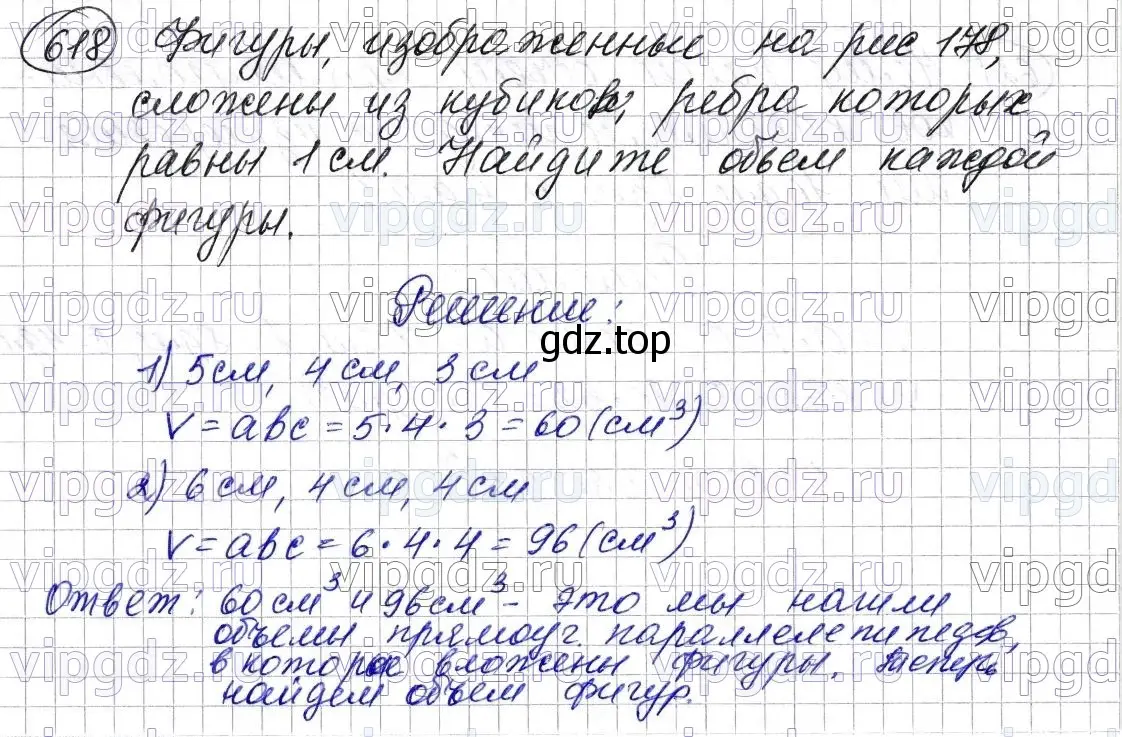 618 Фигуры, изображенные на рис 178,
сложены из кубиков, ребра которых
равны 1 см. Найдите объем каждой
фигуры.
Решение:
gdz.top
1) 5 см, 4 см, 3 см
V = abc = 5 · 4 · 3 = 60 (см³)
2) 6 см, 4 см, 4 см
V = abc = 6 · 4 · 4 = 96 (см³)
Ответ: 60 см³ и 96 см³ - это мы нашли
объемы прямоуг. параллелепипедов,
в которые вложены фигуры. теперь
найдем объем фигур.
vipgdz.ru